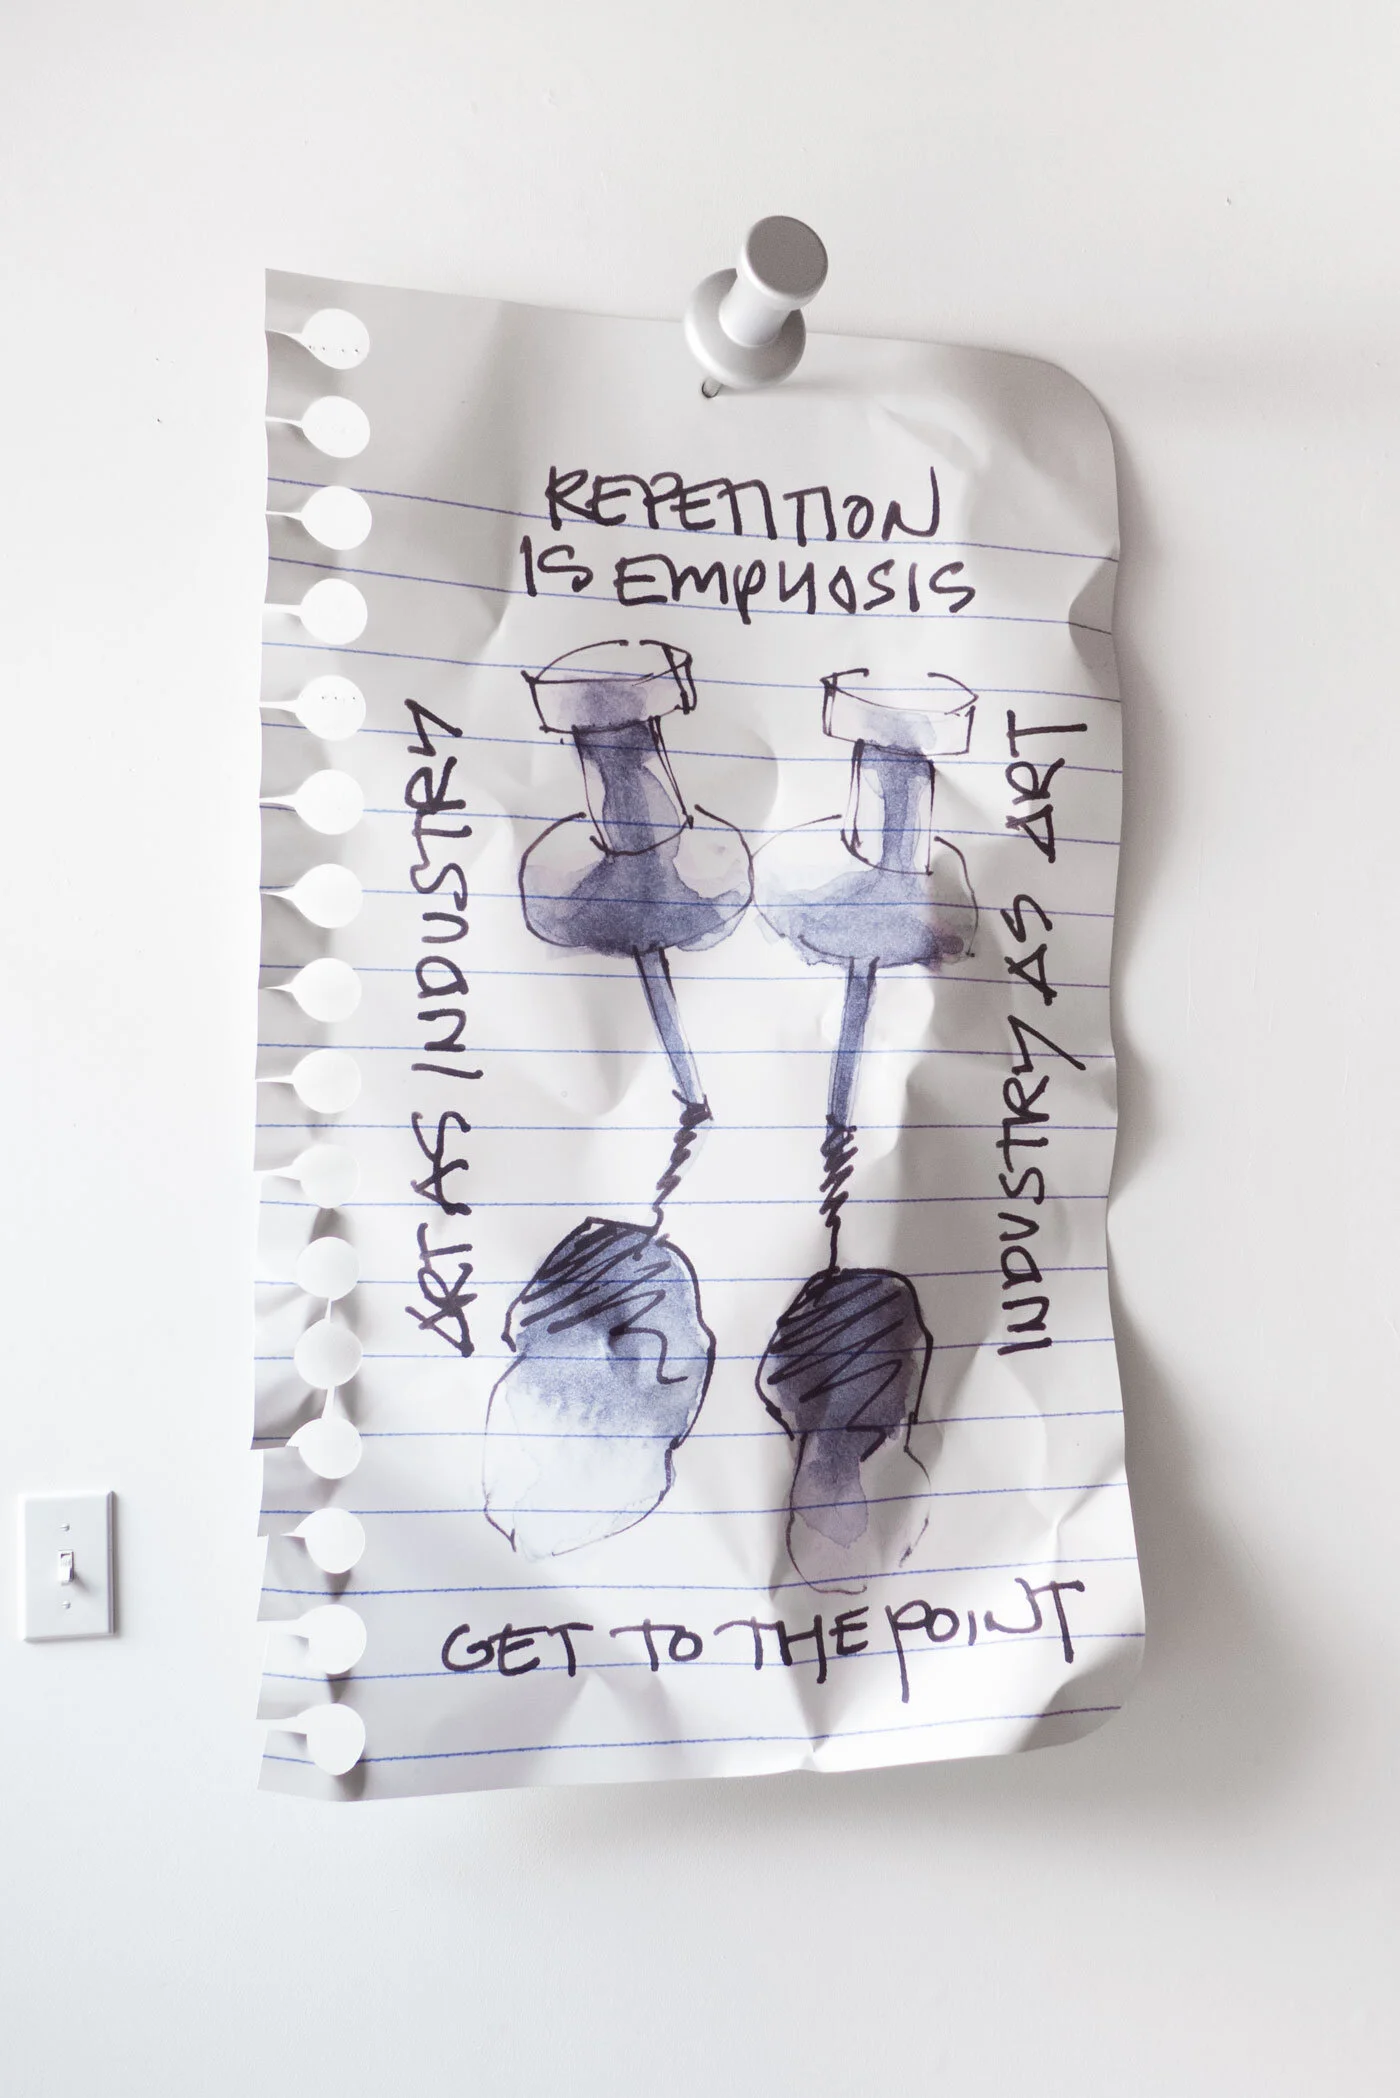 REPETITION
IS EMPHASIS
ART AS INDUSTRY
INDUSTRY AS ART
GET TO THE POINT